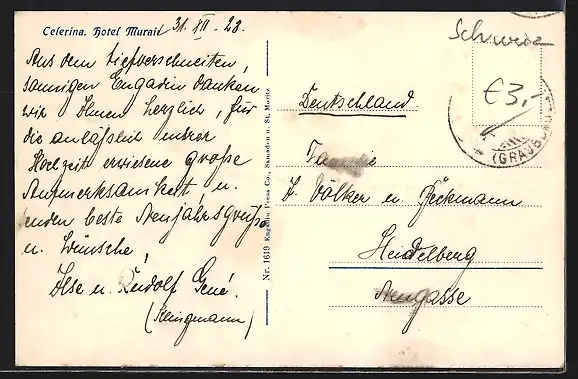 Celerina. Hotel Murail
31. XII. 28.
Aus dem tiefverschneiten,
sonnigen Engadin danken
wir Ihnen herzlich, für
die anläßlich unsrer
Hochzeit erwiesene große
Aufmerksamkeit, u.
senden beste Neujahrsgrüße
u. Wünsche,
Ilse u. Rudolf Gené.
(Klingmann)
Nr. 1619 Engadin Press Co., Samaden u. St. Moritz
Schweiz
€3,-
(GRAUB
Deutschland
Familie
F. Völker u. Beckmann
Heidelberg
Neugasse